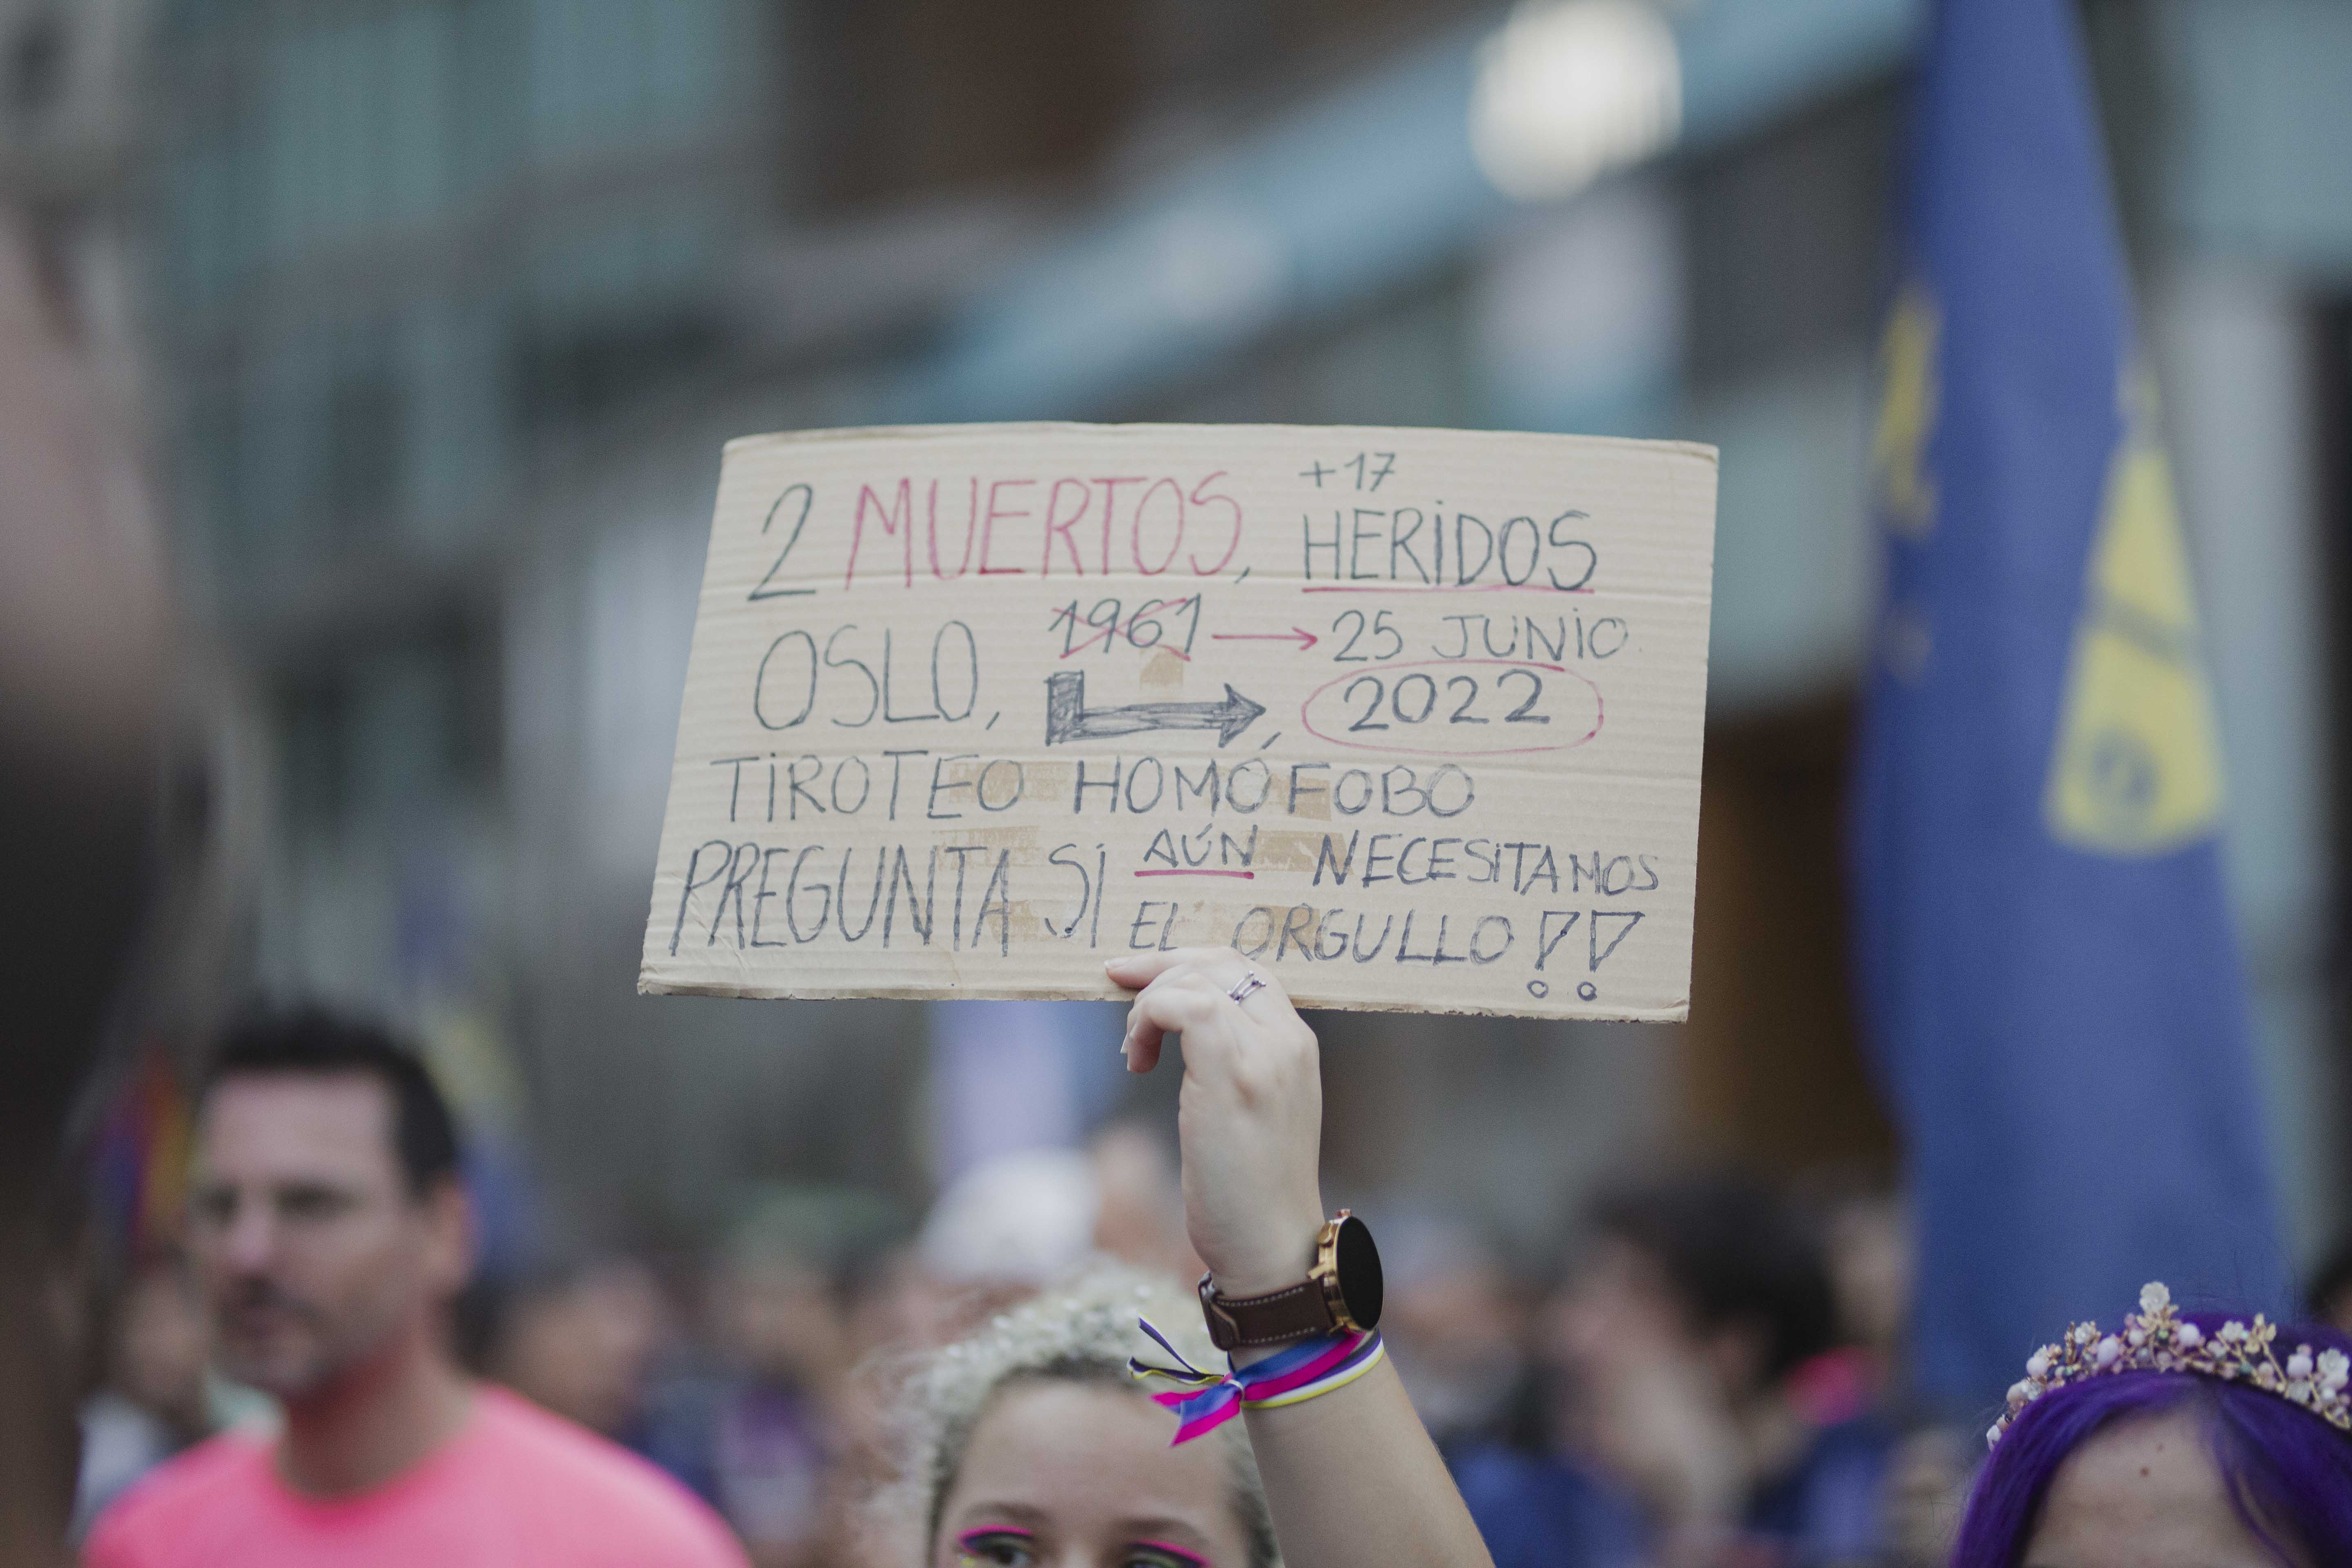 2 MUERTOS, +17 HERIDOS
OSLO, 1961 → 25 JUNIO
2022
TIROTEO HOMÓFOBO
PREGUNTA SI AÚN NECESITAMOS
EL ORGULLO!!